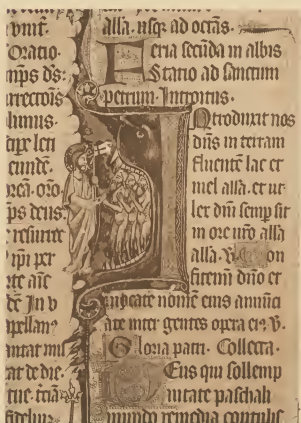 vnit.
Oratio.
nips ds:
rrectois
humus.
dixe leti
eunde.
rea. oro.
ps deus:
resurret
ipi per
te aie
de In v
apellans
antat mi
at de die
tue. tciā
fidelibz.
alla. usq; ad octās.
Feria secūda in albis
Statio ad sanctum
petrum. Introitus.
Introduxit nos
dn̄s in terram
fluentē lac et
mel alla. et ut
lex dn̄i semp sit
in ore u̅ro alla
alla. ps. Con
fitemi dn̄o et
inuocate nomē eius annūci
ate inter gentes opera eiꝰ. V.
Gloria patri. Collecta.
Deus qui sollemp
nitate paschali
mundo remedia contulis